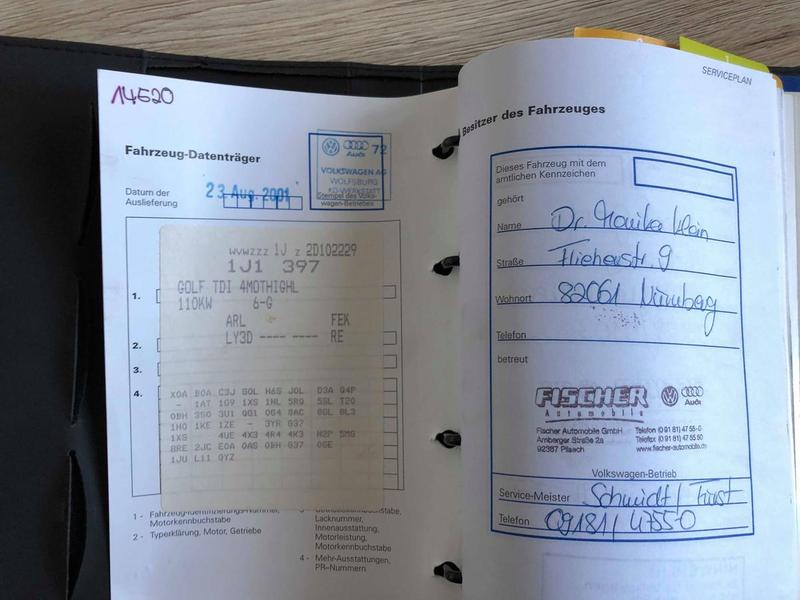 14520
Fahrzeug-Datenträger
Datum der
Auslieferung
23. Aug. 2001
Audi 72
VOLKSWAGEN AG
WOLFSBURG
KD-WERKSTATT
Stempel des Volks-
wagen-Betriebes
WVWZZZ 1J Z 2D102229
1J1 397
GOLF TDI 4MOTHIGHL
110KW 6-G
ARL FEK
LY3D ---- ---- RE
1.
2.
3.
4.
X0A B0A C3J G0L H6S J0L D3A Q4P
- 1AT 1G9 1XS 1NL 5RQ 5SL T2Q
0BH 3S0 3U1 QG1 0G4 8AC 8GL BL3
1N0 1KE 1ZE - 3YR G37
1XS 4UE 4X3 4R4 4K3 N2P 5MG
8RE 2JC E0A 0AS 0BH G37 0GE
1JU L11 QYZ
1 - Fahrzeug-Identifizierungs-Nummer,
Motorkennbuchstabe
2 - Typerklärung, Motor, Getriebe
Lacknummer,
Innenausstattung,
Motorleistung,
Motorkennbuchstabe
4 - Mehr-Ausstattungen,
PR-Nummern
SERVICEPLAN
Besitzer des Fahrzeuges
Dieses Fahrzeug mit dem
amtlichen Kennzeichen
gehört
Name Dr. Monika Klein
Straße Flieherstr. 9
Wohnort 82061 Nürnbag
Telefon
betreut
FISCHER
Automobile Audi
Fischer Automobile GmbH Telefon (0 91 81) 47 55-0
Amberger Straße 2a Telefax (0 91 81) 47 55 50
92367 Pilsach www.fischer-automobile.de
Volkswagen-Betrieb
Service-Meister Schmidt / Fürst
Telefon 09181/4755-0